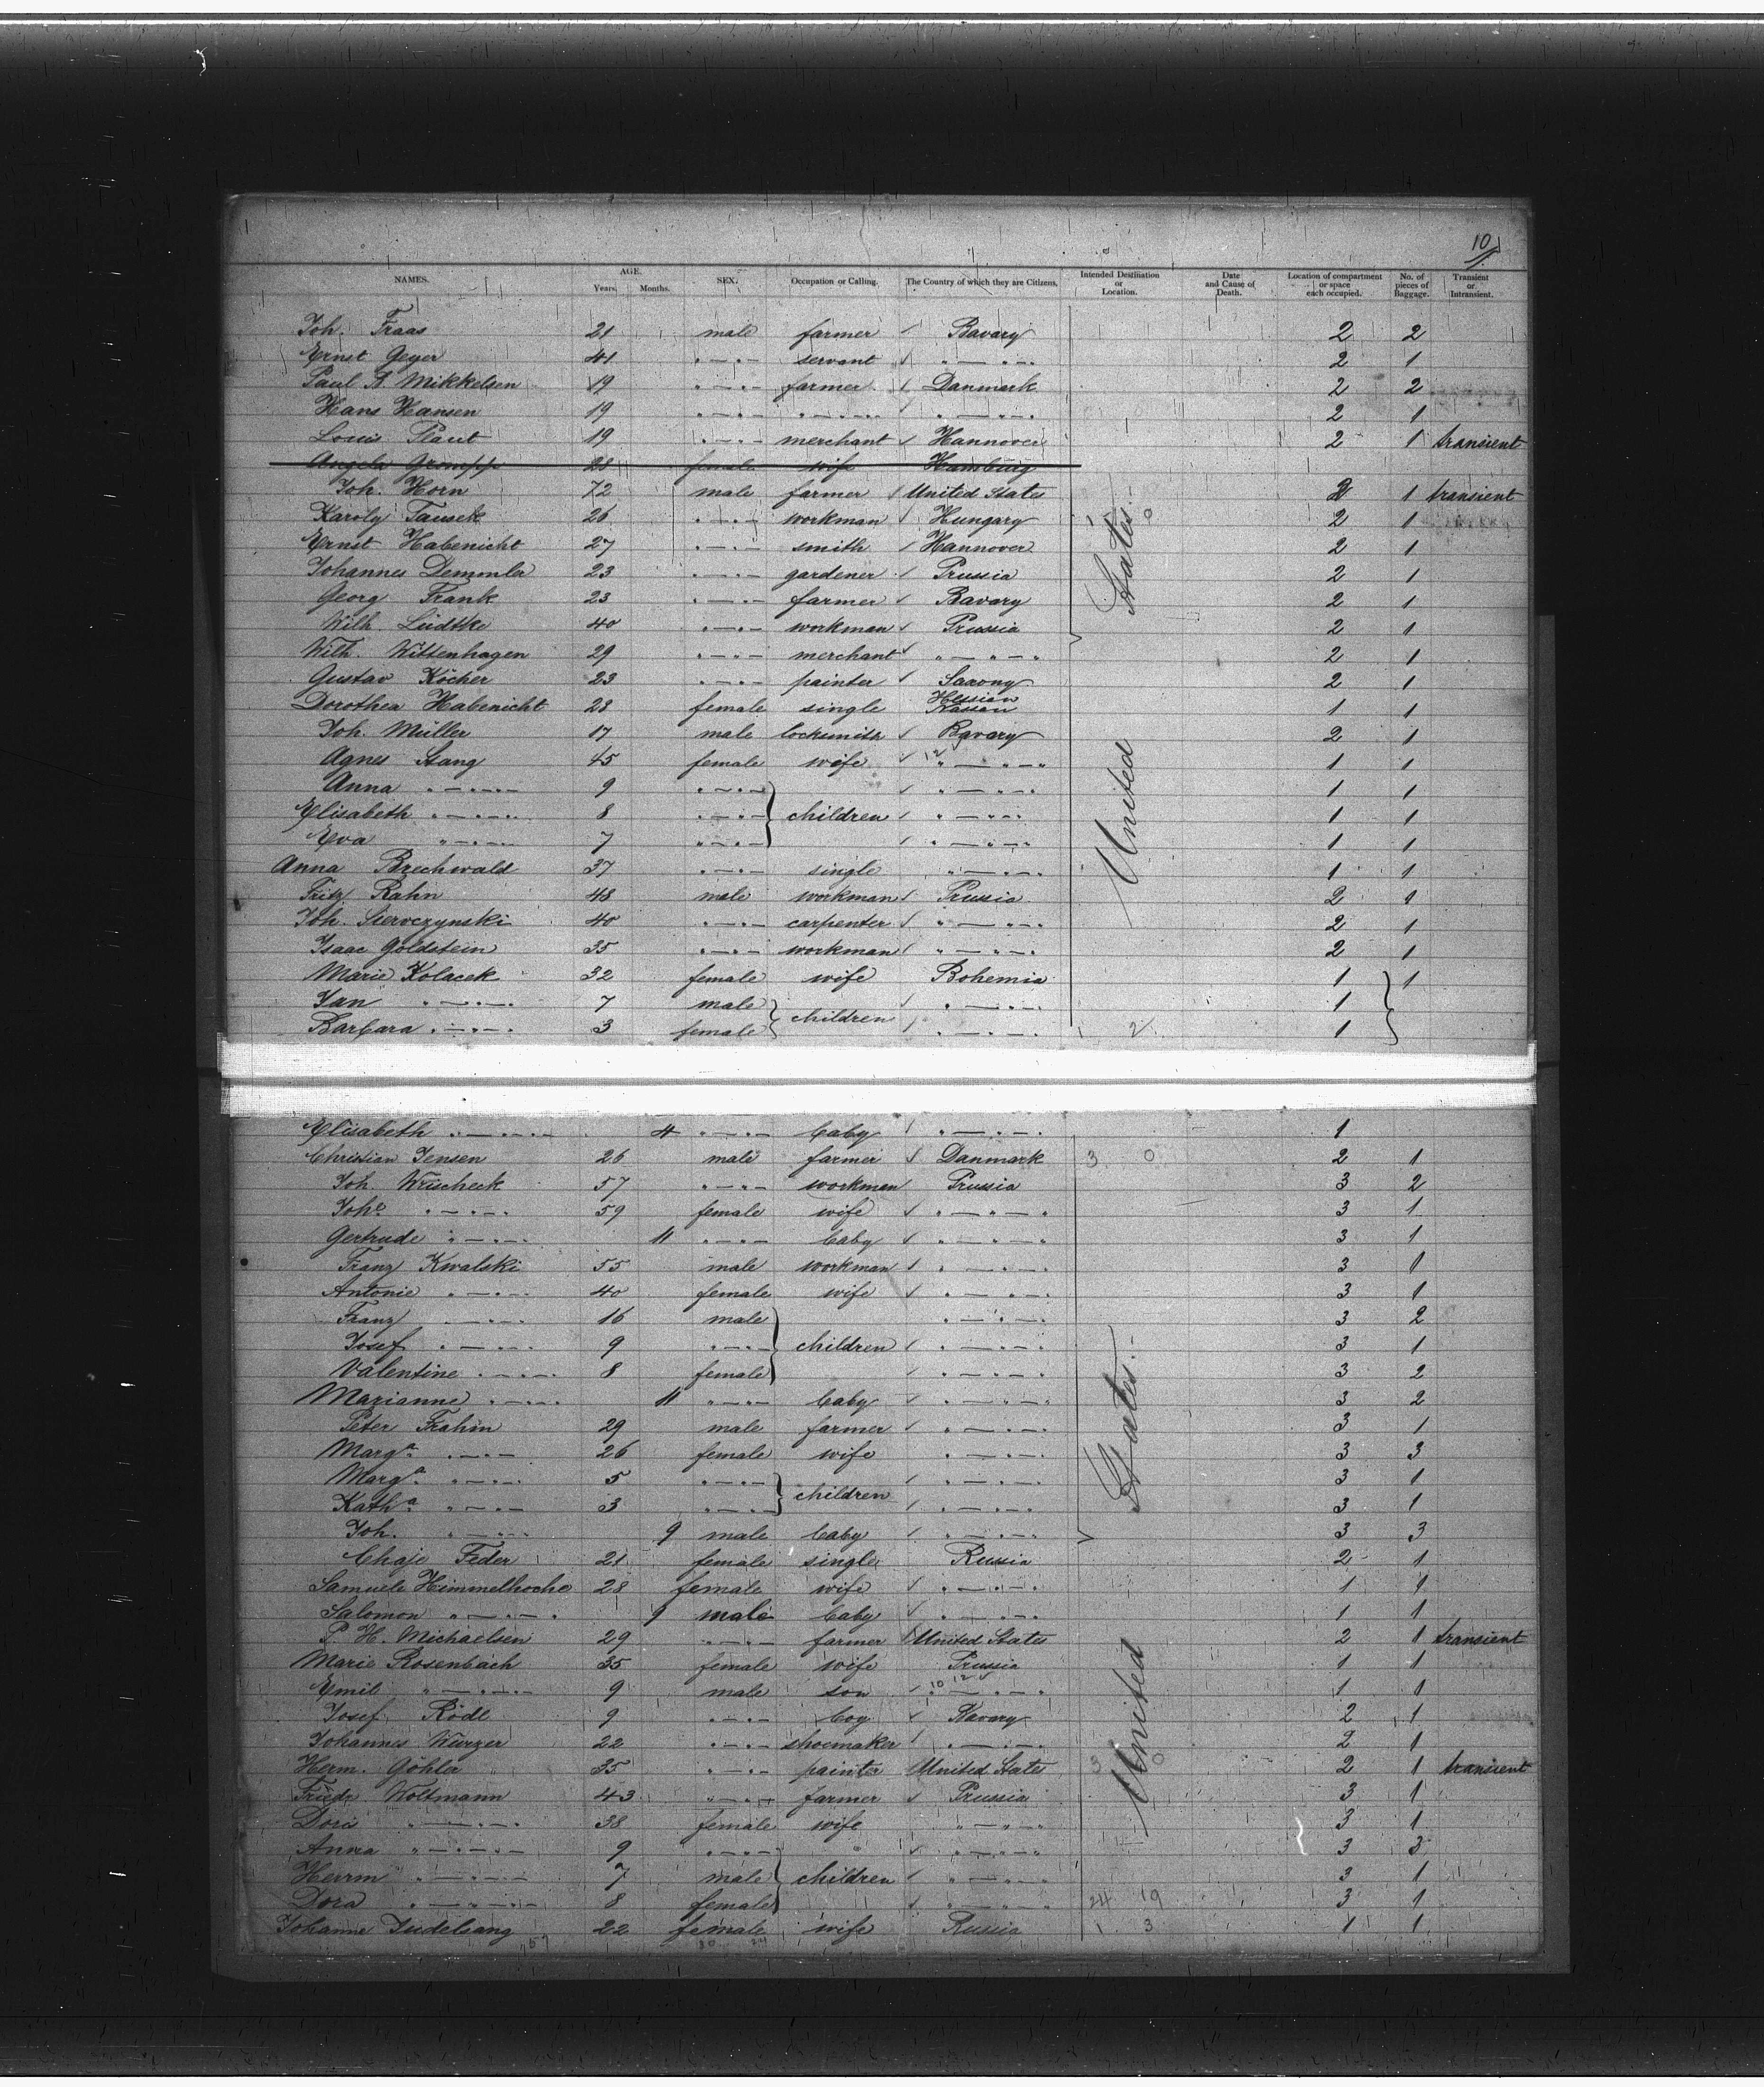 10
NAMES. AGE. Years. Months. SEX. Occupation or Calling. The Country of which they are Citizens. Intended Destination or Location. Date and Cause of Death. Location of compartment or space each occupied. No. of pieces of Baggage. Transient or Intransient.
Joh. Fraas 21 male farmer Bavary 2 2
Ernst Geyer 41 " — " — servant " — " — 2 1
Paul A. Mikkelsen 19 " — " — farmer Danmark 2 2
Hans Hansen 19 " — " — " — " — " — " — 2 1
Louis Plaut 19 " — " — merchant Hannover 2 1 transient
Angela Grompp 28 female wife Hamburg
Joh. Horn 72 male farmer United States 2 1 transient
Karoly Tausek 26 " — " — workman Hungary 2 1
Ernst Habenicht 27 " — " — smith Hannover 2 1
Johannes Demmler 23 " — " — gardener Prussia 2 1
Georg Frank 23 " — " — farmer Bavary 2 1
Wilh. Lüdtke 40 " — " — workman Prussia 2 1
Wilh. Wittenhagen 29 " — " — merchant " — " — " 2 1
Gustav Köcher 23 " — " — painter Saxony 2 1
Dorothea Habenicht 28 female single Hessian Nassau 1 1
Joh. Müller 17 male locksmith Bavary 2 1
Agnes Stang 45 female wife " — " — " 1 1
Anna " — " — 9 " — " — " — " — 1 1
Elisabeth " — " — 8 " — " — children " — " — 1 1
Eva " — " — 7 " — " — " — " — 1 1
Anna Brechwald 37 " — " — single " — " — 1 1
Fritz Rahn 48 male workman Prussia 2 1
Joh. Sieroczynski 40 " — " — carpenter " — " — 2 1
Isaac Goldstein 35 " — " — workman " — " — 2 1
Marie Kolacek 32 female wife Bohemia 1 1
Jan " — " — 7 male " — " — 1
Barbara " — " — 3 female children " — " — 1
United States
Elisabeth " — " — 4 " — " — baby " — " — 1
Christian Jensen 26 male farmer Danmark 3 0 2 1
Joh. Wrischeck 57 " — " — workman Prussia 3 2
Johe " — " — 59 female wife " — " — " 3 1
Gertrude " — " — 11 " — " — baby " — " — " 3 1
Franz Kwalski 55 male workman " — " — 3 1
Antonie " — " — 40 female wife " — " — 3 1
Franz " — " — 16 male " — " — 3 2
Josef " — " — 9 " — " — children " — " — 3 1
Valentine " — " — 8 female " — " — 3 2
Marianne " — " — 11 " — " — baby " — " — 3 2
Peter Frahm 29 male farmer " — " — 3 1
Marga " — " — 26 female wife " — " — 3 3
Marga " — " — 5 " — " — " — " — 3 1
Katha " — " — 3 " — " — children " — " — 3 1
Joh. " — " — 9 male baby " — " — 3 3
Chaje Feder 21 female single Russia 2 1
Samuele Himmelhoche 28 female wife " — " — 1 1
Salomon " — " — 9 male baby " — " — 1 1
P. H. Michaelsen 29 " — " — farmer United States 2 1 transient
Marie Rosenbach 35 female wife Prussia 1 1
Emil " — " — 9 male son " — " — 1 1
Josef Rödl 9 " — " — boy Bavary 2 1
Johannes Würzer 22 " — " — shoemaker " — " — 2 1
Herm. Göhler 35 " — " — painter United States 3 0 2 1 transient
Friedr. Woltmann 43 " — " — farmer Prussia 3 1
Doris " — " — 38 female wife " — " — 3 1
Anna " — " — 9 " — " — " — " — 3 3
Herrm " — " — 7 male children " — " — 3 1
Dora " — " — 8 female " — " — 24 19 3 1
Johanne Judelsang 22 female wife Russia 1 3 1 1
United States